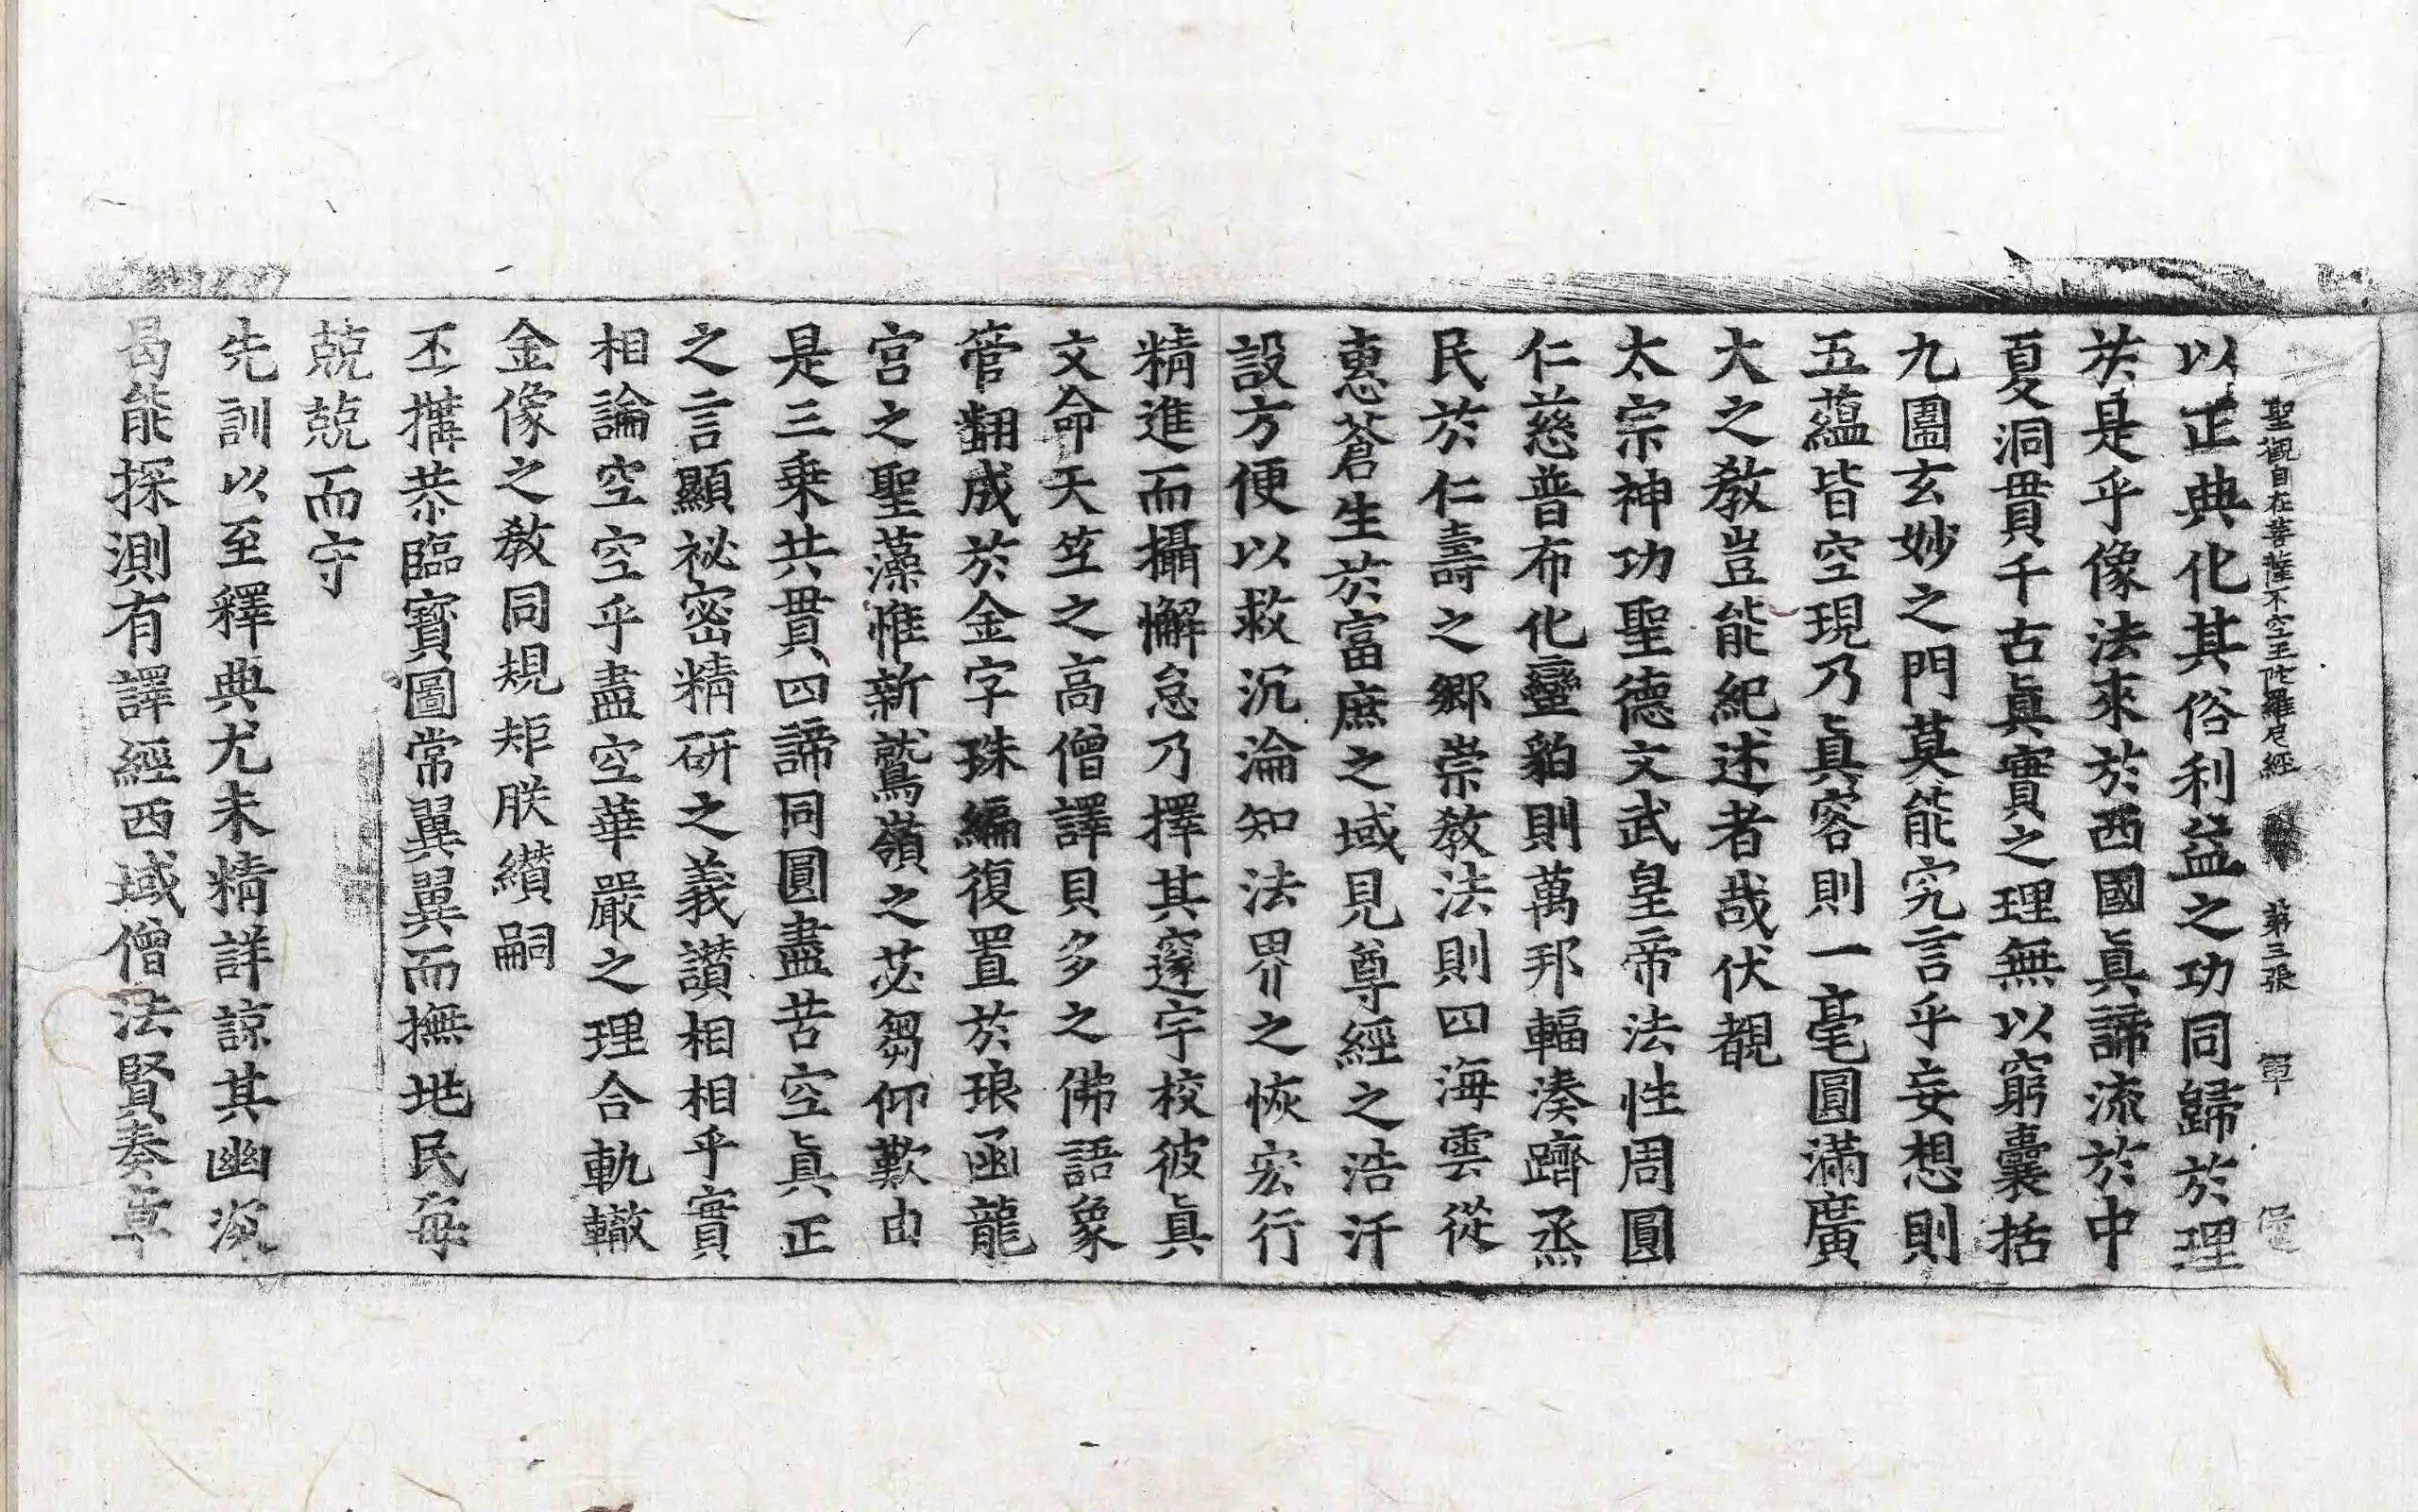 聖觀自在菩薩不空王陁羅尼經 第三張 覃
以正典化其俗利益之功同歸於理
於是乎像法來於西國眞諦流於中
夏洞貫千古眞實之理無以窮囊括
九圍玄妙之門莫能究言乎妄想則
五蘊皆空現乃眞容則一毫圓滿廣
大之教豈能紀述者哉伏覩
太宗神功聖德文武皇帝法性周圓
仁慈普布化蠻貊則萬邦輻湊躋烝
民於仁壽之鄕崇教法則四海雲從
惠蒼生於富庶之域見尊經之浩汗
設方便以救沉淪知法界之恢宏行
精進而攝懈怠乃擇其邃宇校彼眞
文命天竺之高僧譯貝多之佛語象
管翻成於金字珠編復置於琅函龍
宮之聖藻惟新鷲嶺之苾芻仰歎由
是三乘共貫四諦同圓盡苦空眞正
之言顯祕密精硏之義讚相相乎實
相論空空乎盡空華嚴之理合軌轍
金像之教同規矩朕纘嗣
丕搆恭臨寶圖常翼翼而撫地民每
兢兢而守
先訓以至釋典尤未精詳諒其幽深
曷能探測有譯經西域僧法賢奏章